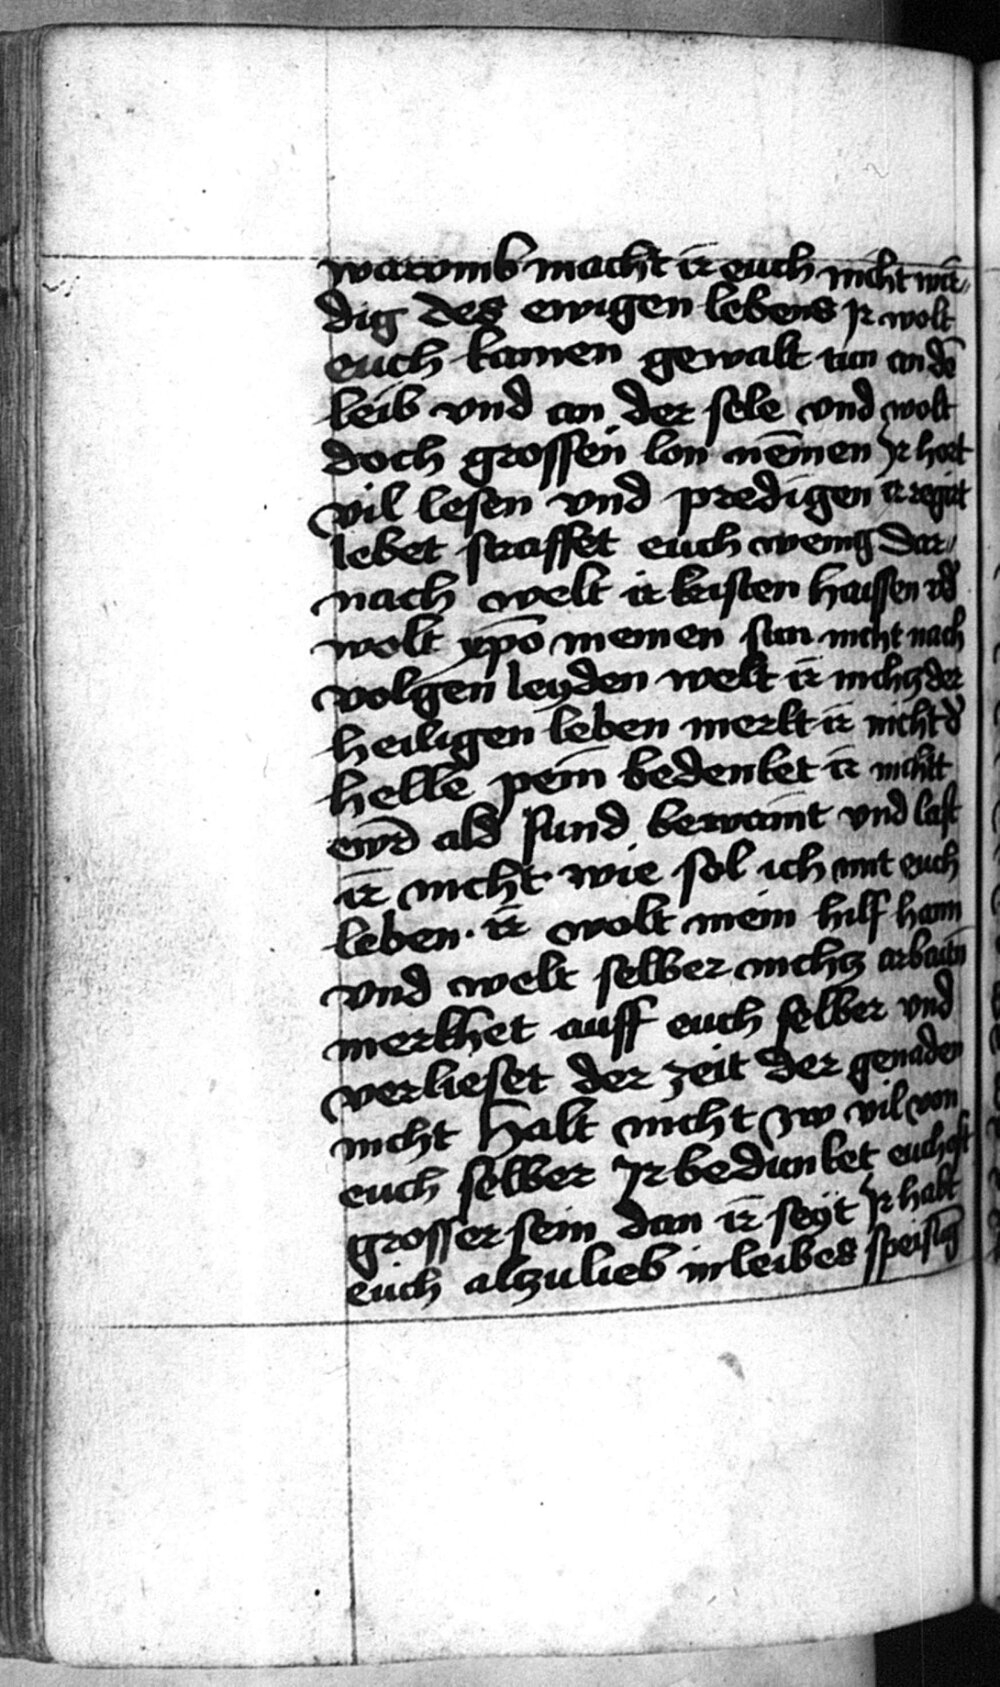 warvmb macht ir euch nicht wir„
dig des ewigen lebens Ir wolt
euch kainen gewalt tun an dē
leib vnd an der sele vnd wolt
doch grossen lon nēmen Ir hort
vil lesen vnd predigen ir regirt
lebet straffet euch wenig dar„
nach welt ir kristen haissen vn̄
wolt xp̄o meinen sun nicht nach
volgen leyden welt ir nichcz der
heiligen leben merkt ir nicht d̄
helle pein bedenket ir nichtt
ewrd ald sund bervaint vnd last
ir nicht wie sol ich mit euch
leben · ir wolt mein hilf hann
vnd welt selber nichcz arbaitn̄
merkhet auff euch selber vnd
verlieset der zeit der genaden
nicht Halt nicht zw vil von
euch selber Ir bedunket euch oft
grosser sein dan ir seyt Ir habt
euch alczulieb in leibes speisūg